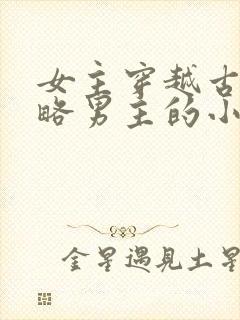 女主穿越古
略男主的小
金星遇見土星